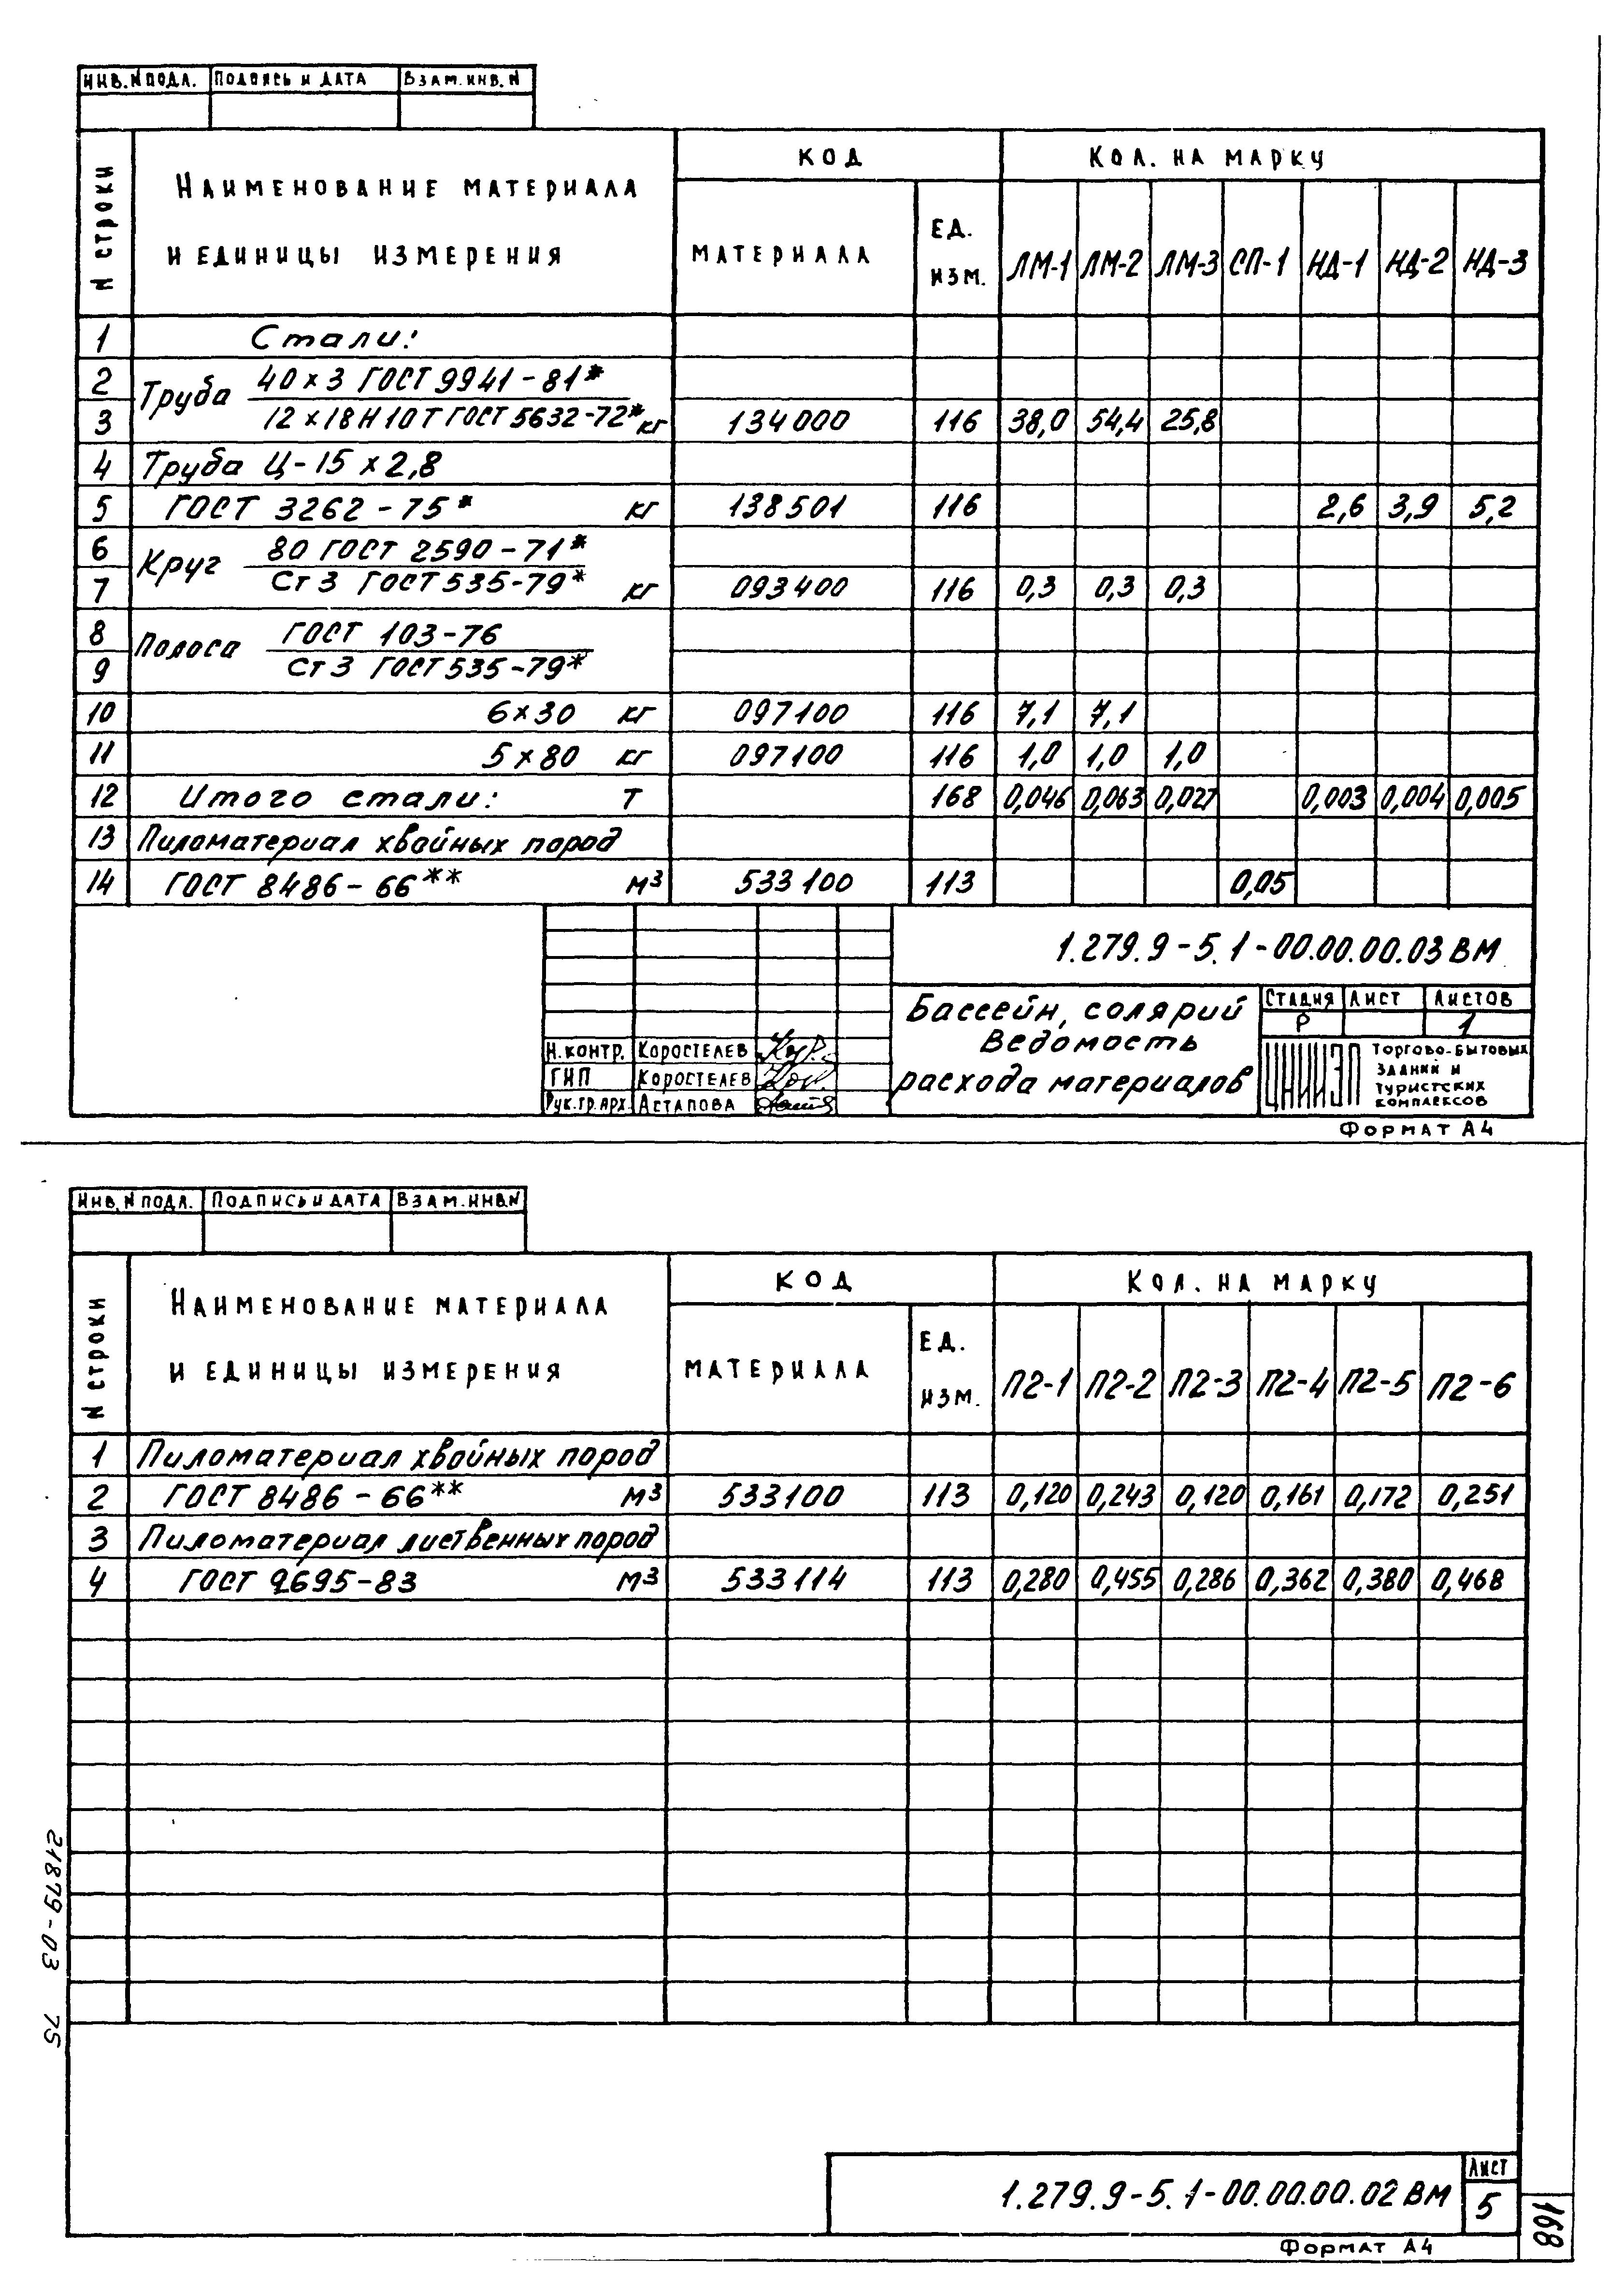 Инв. N подл. Подпись и дата Взам. инв. N
N строки
Наименование материала
и единицы измерения
Код
материала
ед.
изм.
Кол. на марку
ЛМ-1 ЛМ-2 ЛМ-3 СП-1 НД-1 НД-2 НД-3
1 Стали:
2 Труба 40×3 ГОСТ 9941-81*
3 12×18Н10Т ГОСТ 5632-72* кг 134000 116 38,0 54,4 25,8
4 Труба Ц-15×2,8
5 ГОСТ 3262-75* кг 138501 116 2,6 3,9 5,2
6 Круг 80 ГОСТ 2590-71*
7 Ст 3 ГОСТ 535-79* кг 093400 116 0,3 0,3 0,3
8 Полоса ГОСТ 103-76
9 Ст 3 ГОСТ 535-79*
10 6×30 кг 097100 116 7,1 7,1
11 5×80 кг 097100 116 1,0 1,0 1,0
12 Итого стали: т 168 0,046 0,063 0,027 0,003 0,004 0,005
13 Пиломатериал хвойных пород
14 ГОСТ 8486-66** м³ 533100 113 0,05
1.279.9-5.1-00.00.00.03 ВМ
Бассейн, солярий
Ведомость
расхода материалов
Стадия Лист Листов
Р 1
Н.контр. Коростелев
ГИП Коростелев
Рук.гр.арх. Астапова
ЦНИИЭП
торгово-бытовых
зданий и
туристских
комплексов
Формат А4
Инв. N подл. Подпись и дата Взам. инв. N
N строки
Наименование материала
и единицы измерения
Код
материала
ед.
изм.
Кол. на марку
П2-1 П2-2 П2-3 П2-4 П2-5 П2-6
1 Пиломатериал хвойных пород
2 ГОСТ 8486-66** м³ 533100 113 0,120 0,243 0,120 0,161 0,172 0,251
3 Пиломатериал лиственных пород
4 ГОСТ 2695-83 м³ 533114 113 0,280 0,455 0,286 0,362 0,380 0,468
21879-03 75
1.279.9-5.1-00.00.00.02 ВМ
Лист
5
168
Формат А4